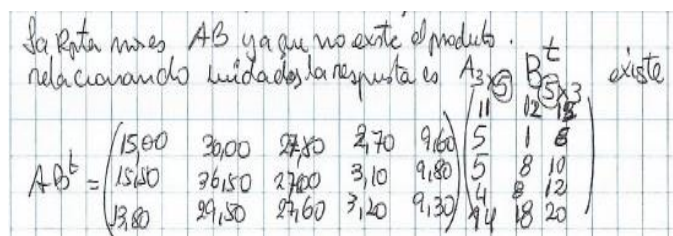 La Rpta no es AB ya que no existe el producto.
relacionando unidades la respuesta es A₃ₓ₅ Bᵗ₅ₓ₃ existe
ABᵗ = (15,00 30,00 27,80 2,70 9,60) (11 12 13
15,50 36,50 27,00 3,10 9,80 5 1 8
13,80 29,50 27,60 3,20 9,30 5 8 10
4 8 12
14 18 20)